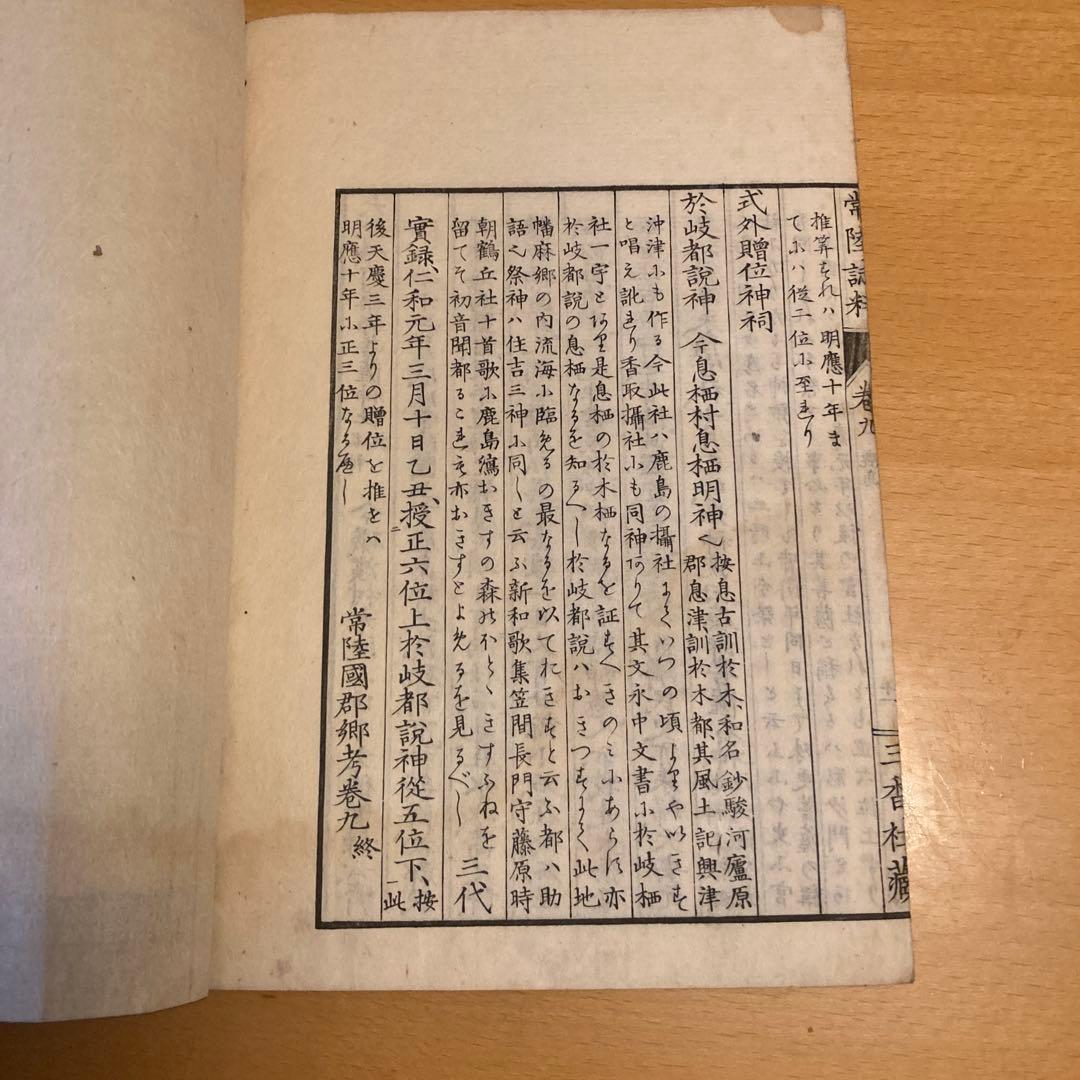 常陸誌料
卷九
三香社藏
推算すれハ明應十年ま
てにハ従二位に至れり
式外贈位神祠
於岐都說神 今息栖村息栖明神也 按息古訓於木、和名鈔駿河廬原
郡息津訓於木都、其風土記興津
沖津にも作る今此社ハ鹿島の攝社にていつの頃よりや以きす
と唱え訛れり香取攝社にも同神ありて其文永中文書に於岐栖
社一宇とあり是息栖の於木栖なるを証すへきのミにあらす亦
於岐都說の息栖なるを知るへし於岐都說ハおきつすにて此地
幡麻郷の内流海に臨める の最なるを以ておきすと云ふ都ハ助
語也祭神ハ住吉三神に同しと云ふ新和歌集笠間長門守藤原時
朝鶴丘社十首歌に鹿島潟おきすの森のほとゝきすふねを
留てそ初音聞都るこれも亦おきすとよめるを見るべし 三代
實録、仁和元年三月十日乙丑、授正六位上於岐都說神從五位下、按
此
後天慶三年よりの贈位を推をハ
明應十年に正三位なるべし
常陸國郡郷考卷九 終